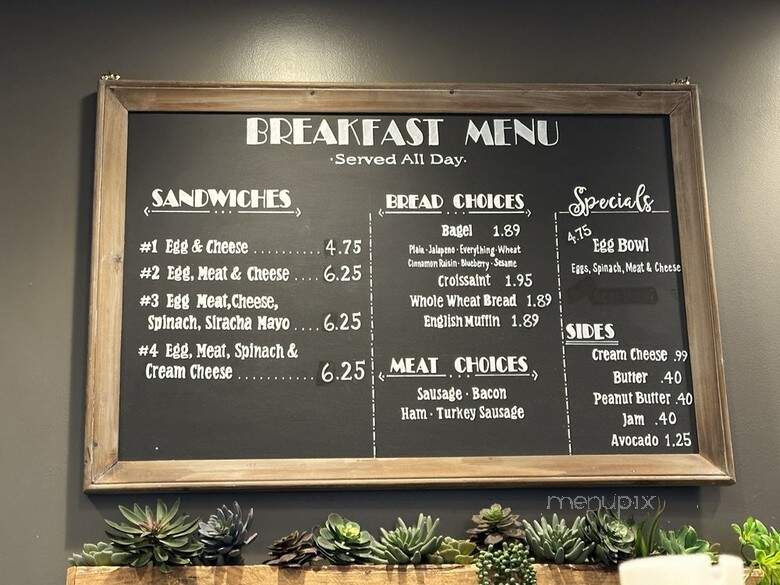 BREAKFAST MENU
·Served All Day·
SANDWICHES
#1 Egg & Cheese .......... 4.75
#2 Egg, Meat & Cheese ..... 6.25
#3 Egg Meat,Cheese,
Spinach, Siracha Mayo .... 6.25
#4 Egg, Meat, Spinach &
Cream Cheese ........... 6.25
BREAD CHOICES
Bagel 1.89
Plain · Jalapeno · Everything · Wheat
Cinnamon Raisin · Blueberry · Sesame
Croissaint 1.95
Whole Wheat Bread 1.89
English Muffin 1.89
MEAT CHOICES
Sausage · Bacon
Ham · Turkey Sausage
Specials
4.75
Egg Bowl
Eggs, Spinach, Meat & Cheese
SIDES
Cream Cheese .99
Butter .40
Peanut Butter .40
Jam .40
Avocado 1.25
menupix